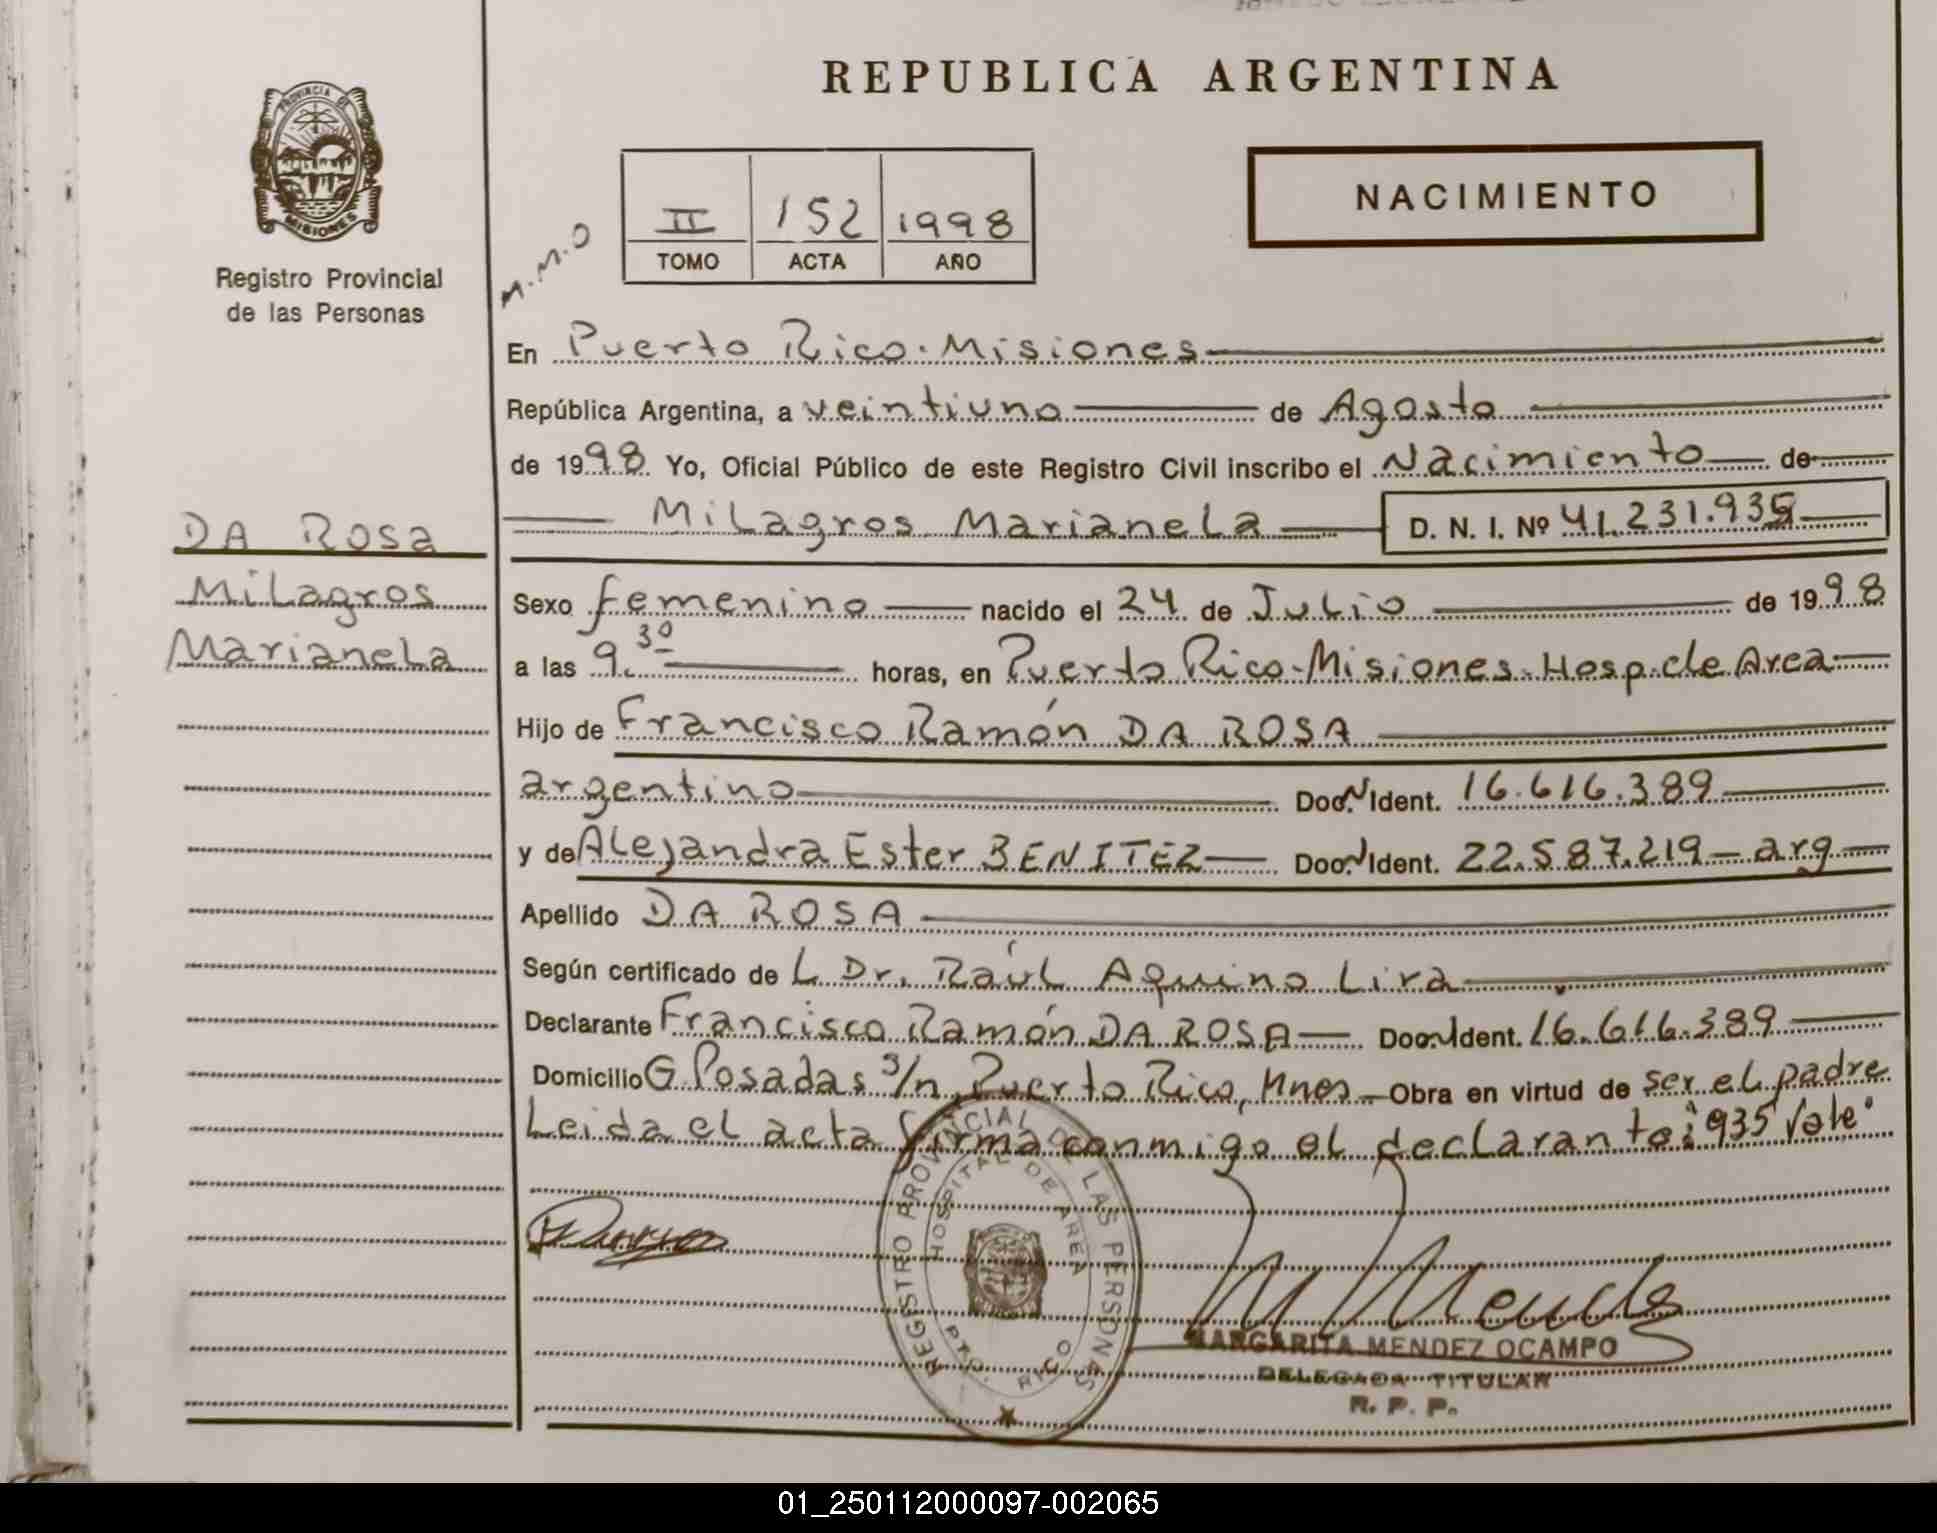 REPUBLICA ARGENTINA
PROVINCIA DE
MISIONES
Registro Provincial
de las Personas
NACIMIENTO
II 152 1998
TOMO ACTA AÑO
M.M.O
En Puerto Rico. Misiones
República Argentina, a veintiuno de Agosto
de 1998 Yo, Oficial Público de este Registro Civil inscribo el Nacimiento de
Milagros Marianela D. N. I. Nº 41.231.935
DA ROSA
Milagros
Marianela
Sexo femenino nacido el 24 de Julio de 1998
a las 9.30 horas, en Puerto Rico-Misiones. Hosp. de Area
Hijo de Francisco Ramón DA ROSA
argentino Doc. N Ident. 16.616.389
y de Alejandra Ester BENITEZ Doc. N Ident. 22.587.219 - arg
Apellido DA ROSA
Según certificado de L Dr. Raúl Aquino Lira
Declarante Francisco Ramón DA ROSA Doc. N Ident. 16.616.389
Domicilio G. Posadas s/n, Puerto Rico, Mnes Obra en virtud de ser el padre
Leida el acta firma conmigo el declarante: "935 Vale"
REGISTRO PROVINCIAL DE LAS PERSONAS
HOSPITAL DE AREA
PTO. RICO
M Mende
MARGARITA MENDEZ OCAMPO
DELEGADA TITULAR
R. P. P.
01_250112000097-002065